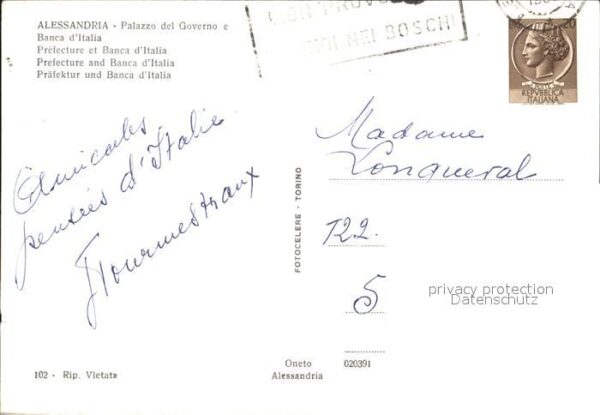 ALESSANDRIA - Palazzo del Governo e
Banca d'Italia
Préfecture et Banca d'Italia
Prefecture and Banca d'Italia
Präfektur und Banca d'Italia
NEI BOSCHI
20
REPVBBLICA
ITALIANA
Amicales
pensées d'Italie
Madame
Longueval
122
5
FOTOCELERE - TORINO
privacy protection
Datenschutz
102 - Rip. Vietata
Oneto
Alessandria
020391